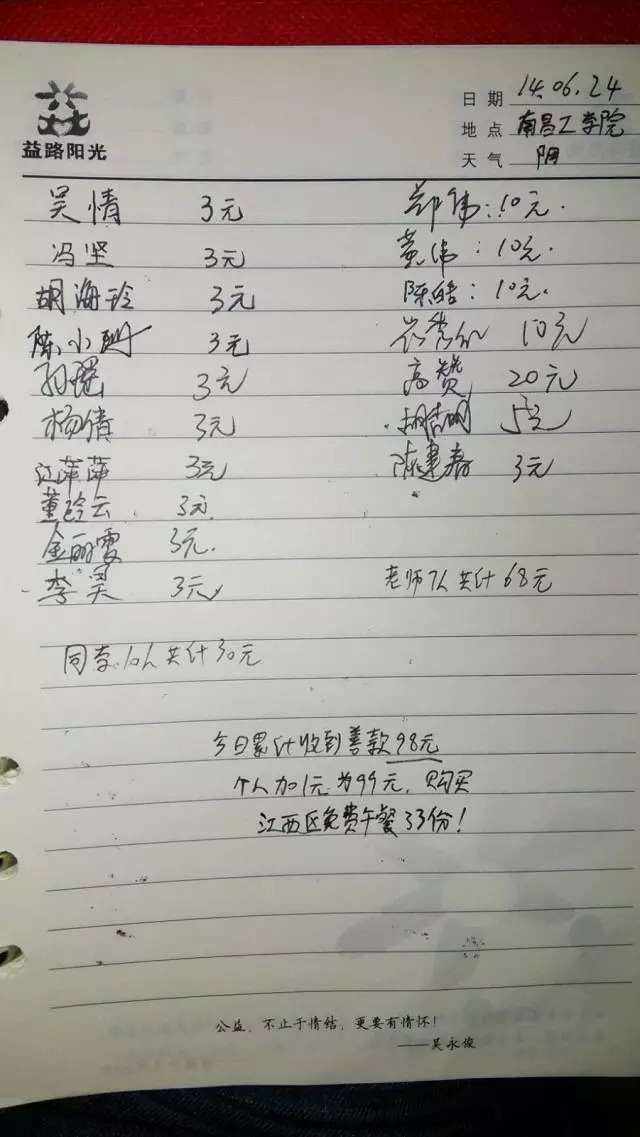 益路阳光
日期 14.06.24
地点 南昌工学院
天气 阴
吴情 3元
冯坚 3元
胡海玲 3元
陈小珊 3元
孙瑶 3元
杨倩 3元
江萍萍 3元
董玲云 3元
金丽霞 3元.
李昊 3元
同学10人共计30元
郑伟:10元.
黄伟:10元.
陈皓:10元.
10元
高赞 20元
胡吉明 5元
陈建春 3元
老师7人共计68元
今日累计收到善款98元
个人加1元为99元,购买
江西区免费午餐33份!
公益,不止于情结,更要有情怀!
——吴永俊